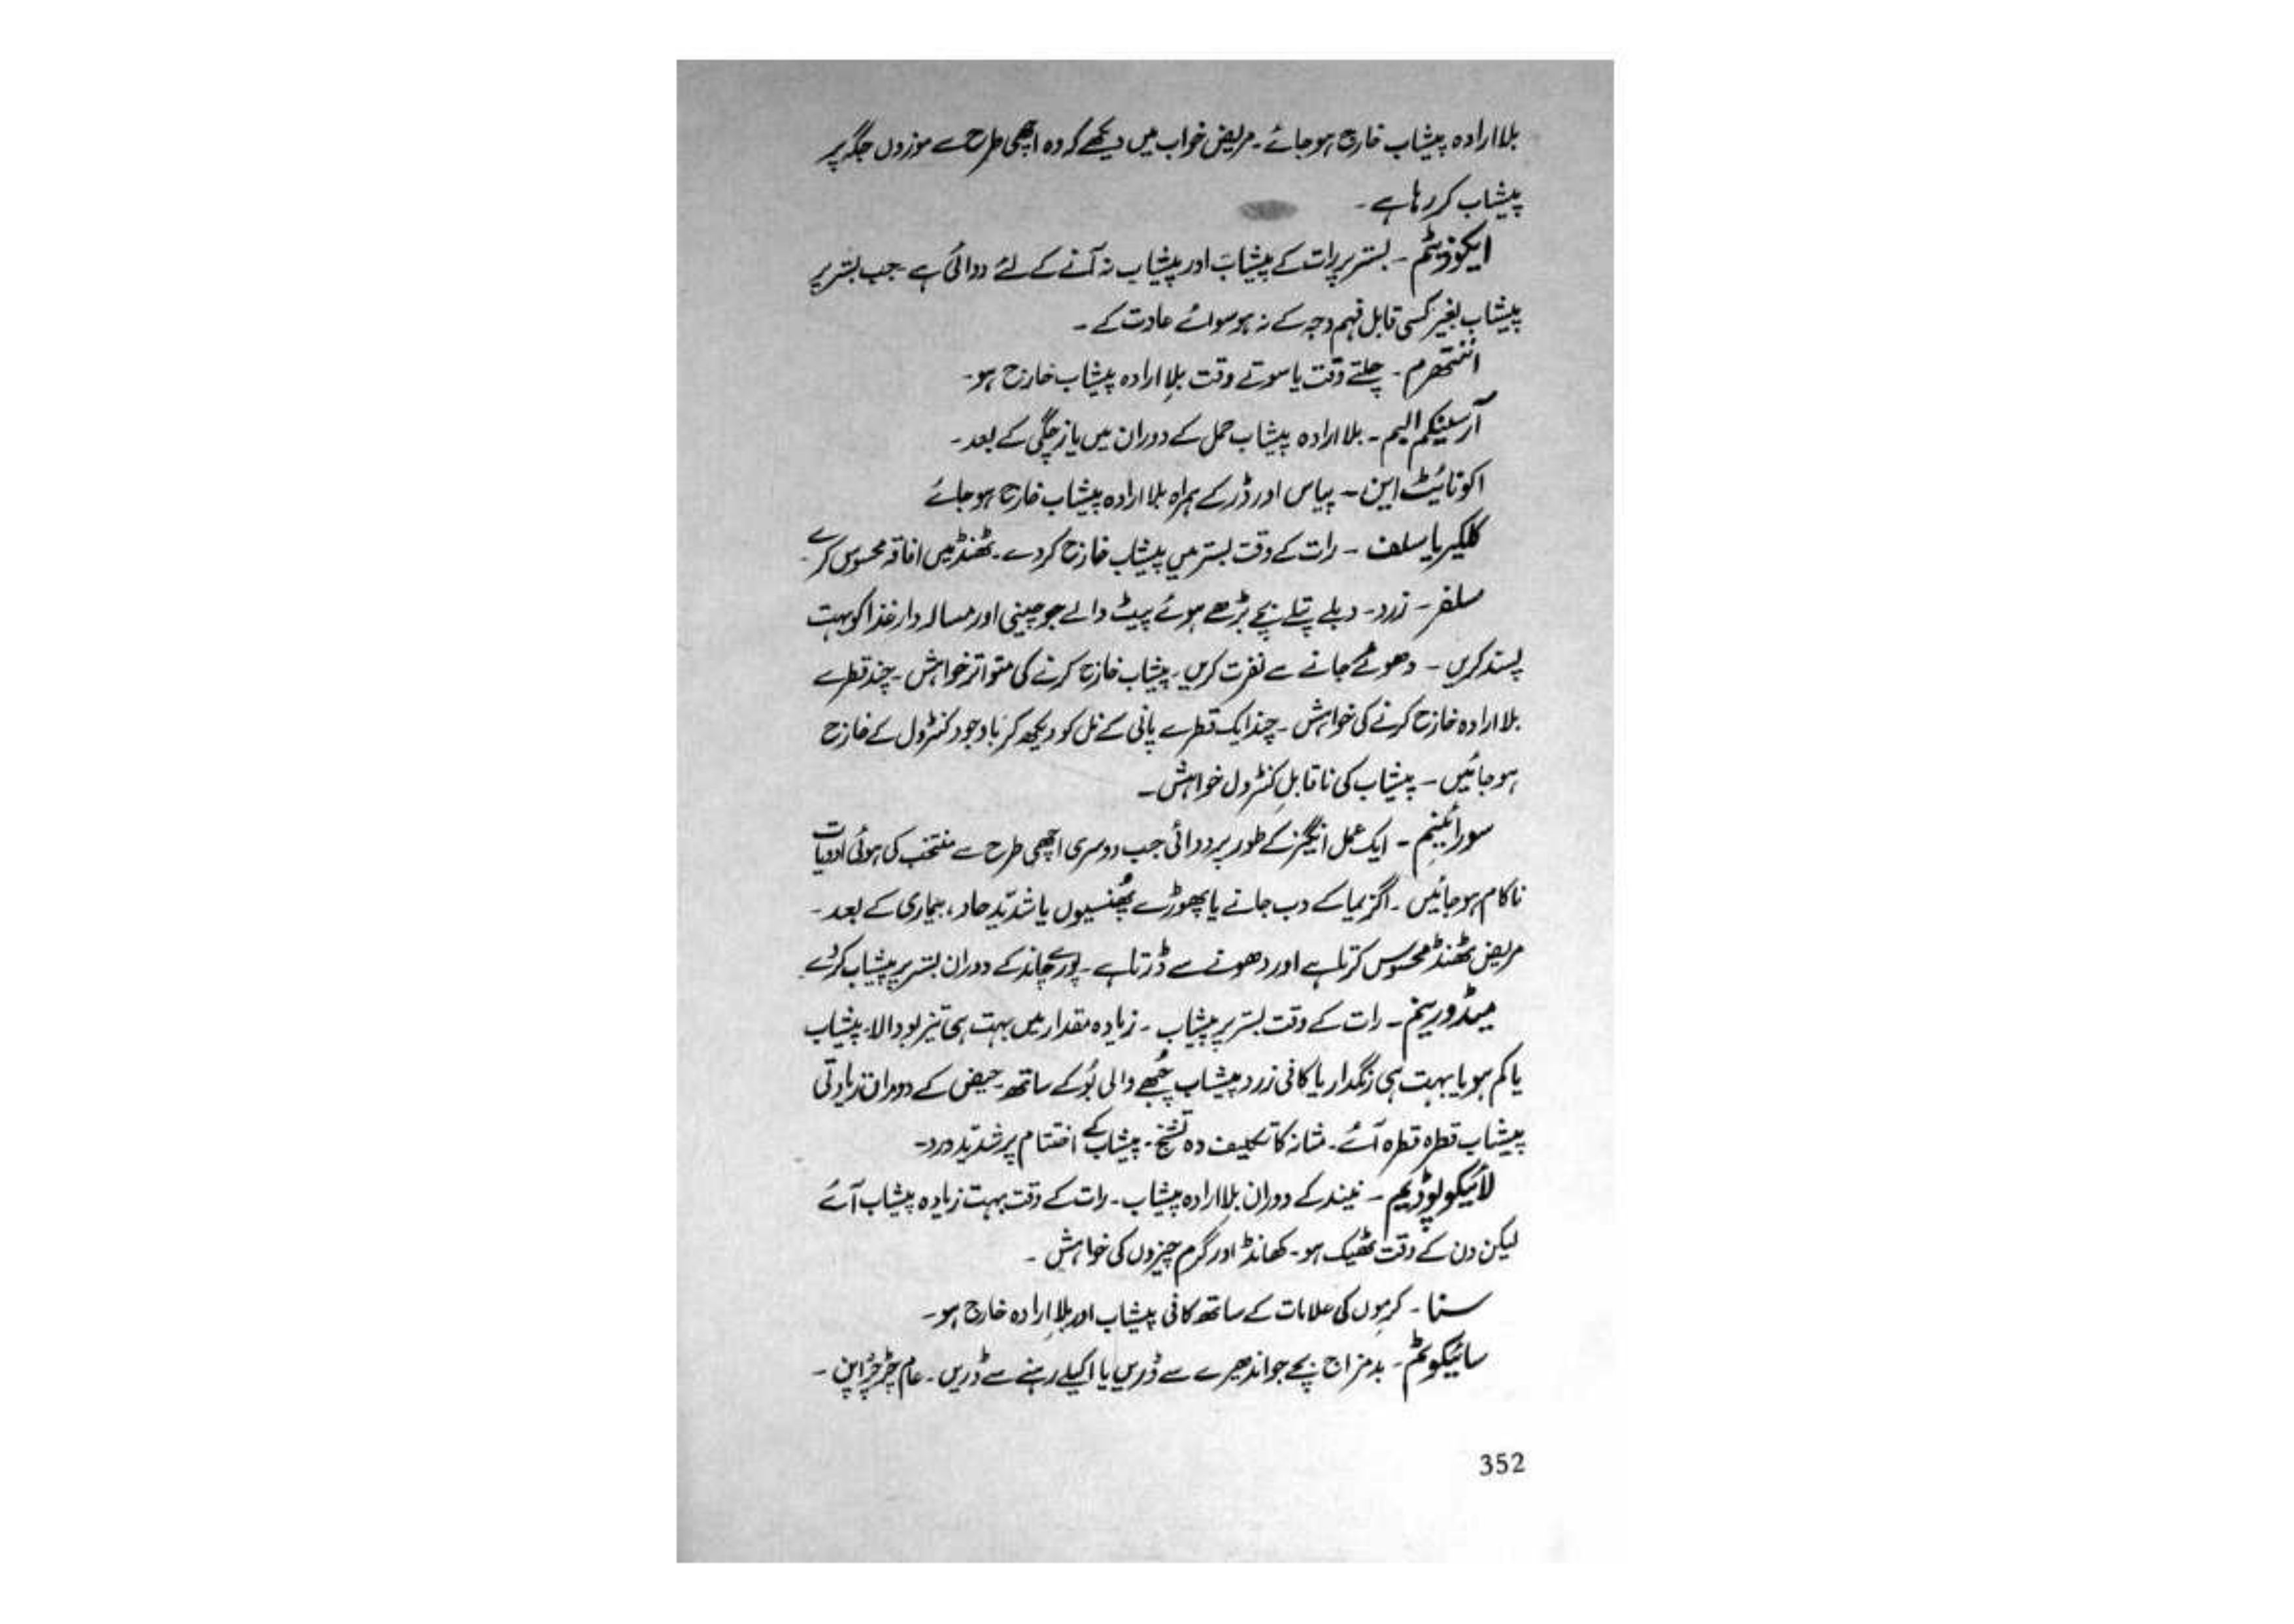 بلاارادہ پیشاب خارج ہو جائے۔ مریض خواب میں دیکھے کہ وہ اچھی طرح سے موزوں جگہ پر
پیشاب کر رہا ہے۔
ایکوزیٹم۔ بستر پر رات کے پیشاب اور پیشاب نہ آنے کے لئے دوائی ہے۔ جب بستر پر
پیشاب بغیر کسی قابل فہم وجہ کے نہ ہو سوائے عادت کے۔
انتھرم۔ چلتے وقت یا سوتے وقت بلاِ ارادہ پیشاب خارج ہو۔
آرسینکم البم۔ بلا ارادہ پیشاب حمل کے دوران میں یا زچگی کے بعد۔
اکونائیٹ این۔ پیاس اور ڈر کے ہمراہ بلا ارادہ پیشاب خارج ہو جائے
کلکیریا سلف۔ رات کے وقت بستر میں پیشاب خارج کر دے۔ ٹھنڈ میں افاقہ محسوس کرے۔
سلفر۔ زرد۔ دبلے پتلے بچے بڑھے ہوئے پیٹ والے جو چینی اور مسالہ دار غذا کو بہت
پسند کریں۔ دھوئے جانے سے نفرت کریں۔ پیشاب خارج کرنے کی متواتر خواہش۔ چند قطرے
بلا ارادہ خارج کرنے کی خواہش۔ چند ایک قطرے پانی کے نل کو دیکھ کر باوجود کنٹرول کے خارج
ہو جائیں۔ پیشاب کی ناقابلِ کنٹرول خواہش۔
سورائینم۔ ایک عمل انگیز کے طور پر دوائی جب دوسری اچھی طرح سے منتخب کی ہوئی ادویات
ناکام ہو جائیں۔ اگزیما کے دب جانے یا پھوڑے پھُنسیوں یا شدید حاد، بیماری کے بعد۔
مریض ٹھنڈ محسوس کرتا ہے اور دھونے سے ڈرتا ہے۔ پورے چاند کے دوران بستر پر پیشاب کر دے۔
میڈورینم۔ رات کے وقت بستر پر پیشاب۔ زیادہ مقدار میں بہت ہی تیز بو والا۔ پیشاب
یا کم ہو یا بہت ہی رنگدار یا کافی زرد پیشاب چُبھے والی بُو کے ساتھ۔ حیض کے دوران زیادتی
پیشاب قطرہ قطرہ آئے۔ مثانہ کا تکلیف دہ تشنج۔ پیشاب کے اختتام پر شدید درد۔
لائیکوپوڈیم۔ نیند کے دوران بلا ارادہ پیشاب۔ رات کے وقت بہت زیادہ پیشاب آئے
لیکن دن کے وقت ٹھیک ہو۔ کھانڈ اور گرم چیزوں کی خواہش۔
سنا۔ کرموں کی علامات کے ساتھ کافی پیشاب اور بلا ارادہ خارج ہو۔
سائیکوٹم۔ بدمزاج بچے جو اندھیرے سے ڈریں یا اکیلے رہنے سے ڈریں۔ عام چڑچڑاپن۔
352